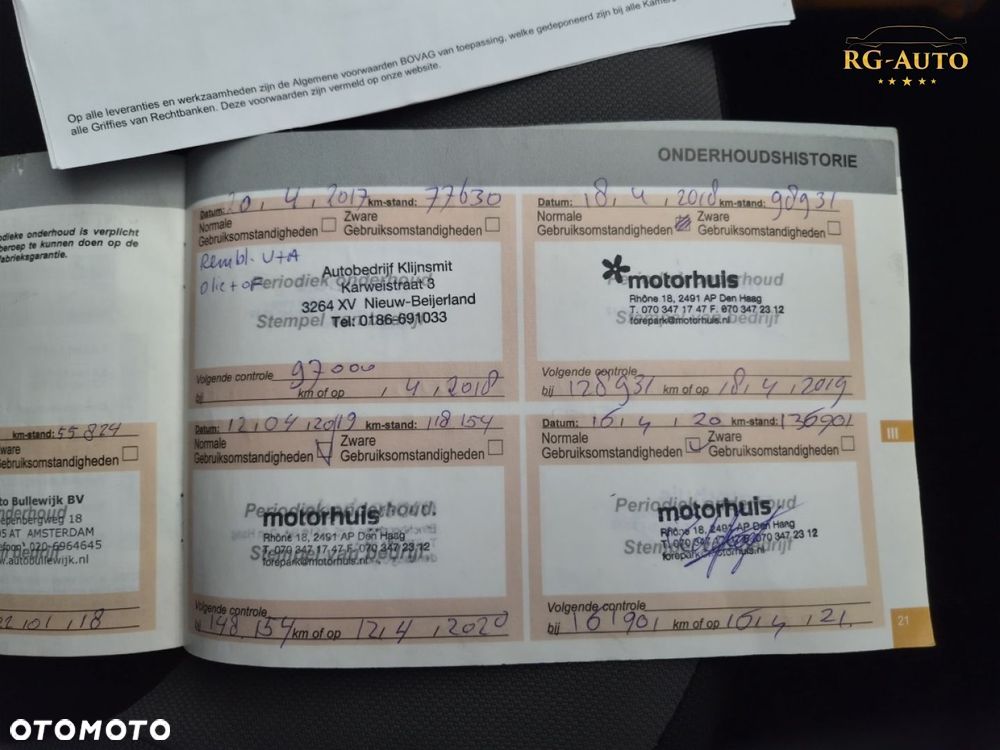 Op alle leveranties en werkzaamheden zijn de Algemene voorwaarden BOVAG van toepassing, welke gedeponeerd zijn bij alle Kamers
alle Griffies van Rechtbanken. Deze voorwaarden zijn vermeld op onze website.
RG-AUTO
ONDERHOUDSHISTORIE
odieke onderhoud is verplicht
beroep te kunnen doen op de
fabrieksgarantie.
km-stand: 55 824
ware
Gebruiksomstandigheden
to Bullewijk BV
epenbergweg 18
05 AT AMSTERDAM
elefoon: 020-6964645
w.autobullewijk.nl
22, 01, 18
Datum: 20, 4, 2017 km-stand: 77630
Normale
Gebruiksomstandigheden
Zware
Gebruiksomstandigheden
Rembl. V+A
Olie + oF
Periodiek onderhoud
Autobedrijf Klijnsmit
Karweistraat 3
3264 XV Nieuw-Beijerland
Tel: 0186-691033
Stempel van bedrijf
Volgende controle
bij 97000 km of op , 4, 2018
Datum: 18, 4, 2018 km-stand: 98931
Normale
Gebruiksomstandigheden
Zware
Gebruiksomstandigheden
Periodiek onderhoud
motorhuis
Rhône 18, 2491 AP Den Haag
T. 070 347 17 47 F. 070 347 23 12
forepark@motorhuis.nl
Stempel van bedrijf
Volgende controle
bij 128931 km of op 18, 4, 2019
Datum: 12, 04, 2019 km-stand: 118 154
Normale
Gebruiksomstandigheden
Zware
Gebruiksomstandigheden
Periodiek onderhoud
motorhuis
Rhône 18, 2491 AP Den Haag
T. 070 347 17 47 F. 070 347 23 12
forepark@motorhuis.nl
Stempel van bedrijf
Volgende controle
bij 148.154 km of op 12, 4, 2020
Datum: 16, 4, 20 km-stand: 136901
Normale
Gebruiksomstandigheden
Zware
Gebruiksomstandigheden
Periodiek onderhoud
motorhuis
Rhône 18, 2491 AP Den Haag
T. 070 347 17 47 F. 070 347 23 12
forepark@motorhuis.nl
Stempel van bedrijf
Volgende controle
bij 161901 km of op 16, 4, 21.
III
21
OTOMOTO